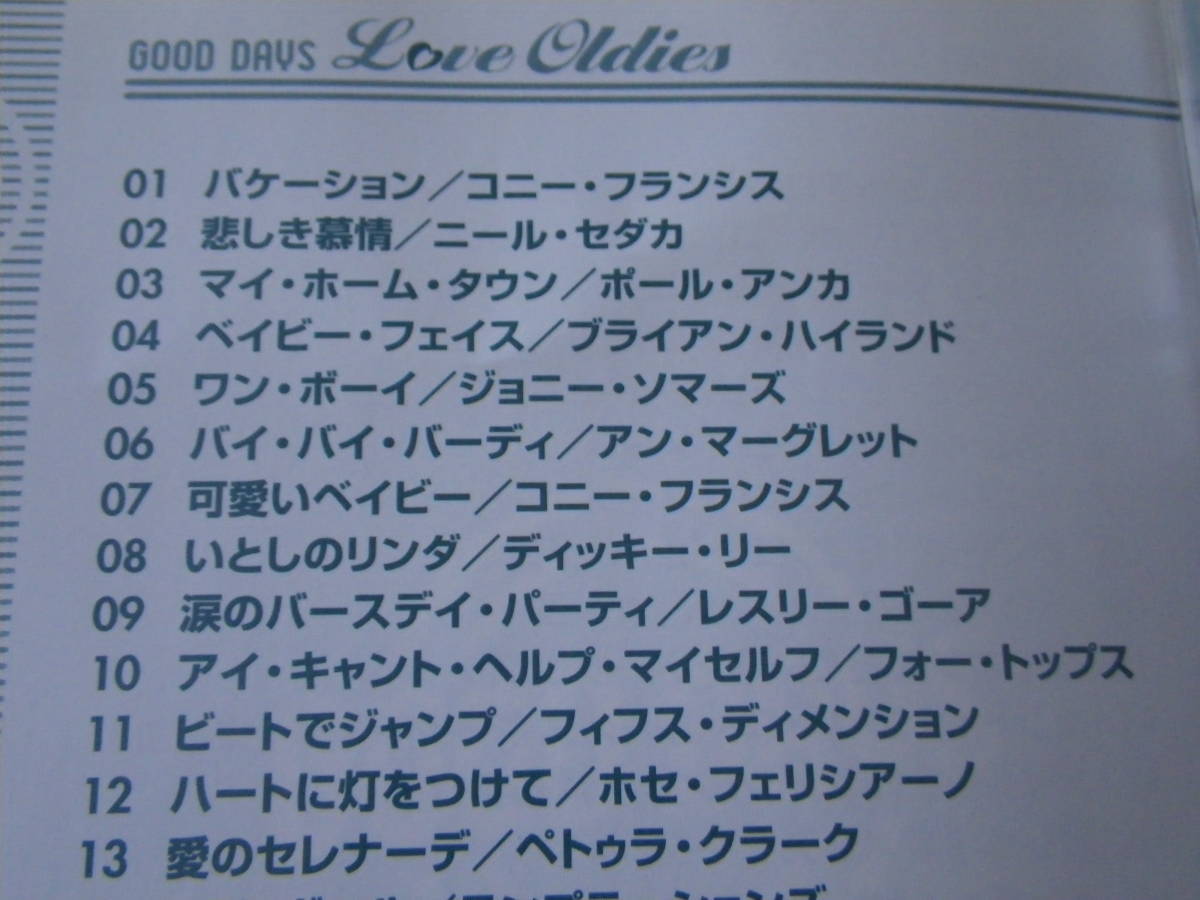 GOOD DAYS Love Oldies
01 バケーション／コニー・フランシス
02 悲しき慕情／ニール・セダカ
03 マイ・ホーム・タウン／ポール・アンカ
04 ベイビー・フェイス／ブライアン・ハイランド
05 ワン・ボーイ／ジョニー・ソマーズ
06 バイ・バイ・バーディ／アン・マーグレット
07 可愛いベイビー／コニー・フランシス
08 いとしのリンダ／ディッキー・リー
09 涙のバースデイ・パーティ／レスリー・ゴーア
10 アイ・キャント・ヘルプ・マイセルフ／フォー・トップス
11 ビートでジャンプ／フィフス・ディメンション
12 ハートに灯をつけて／ホセ・フェリシアーノ
13 愛のセレナーデ／ペトゥラ・クラーク